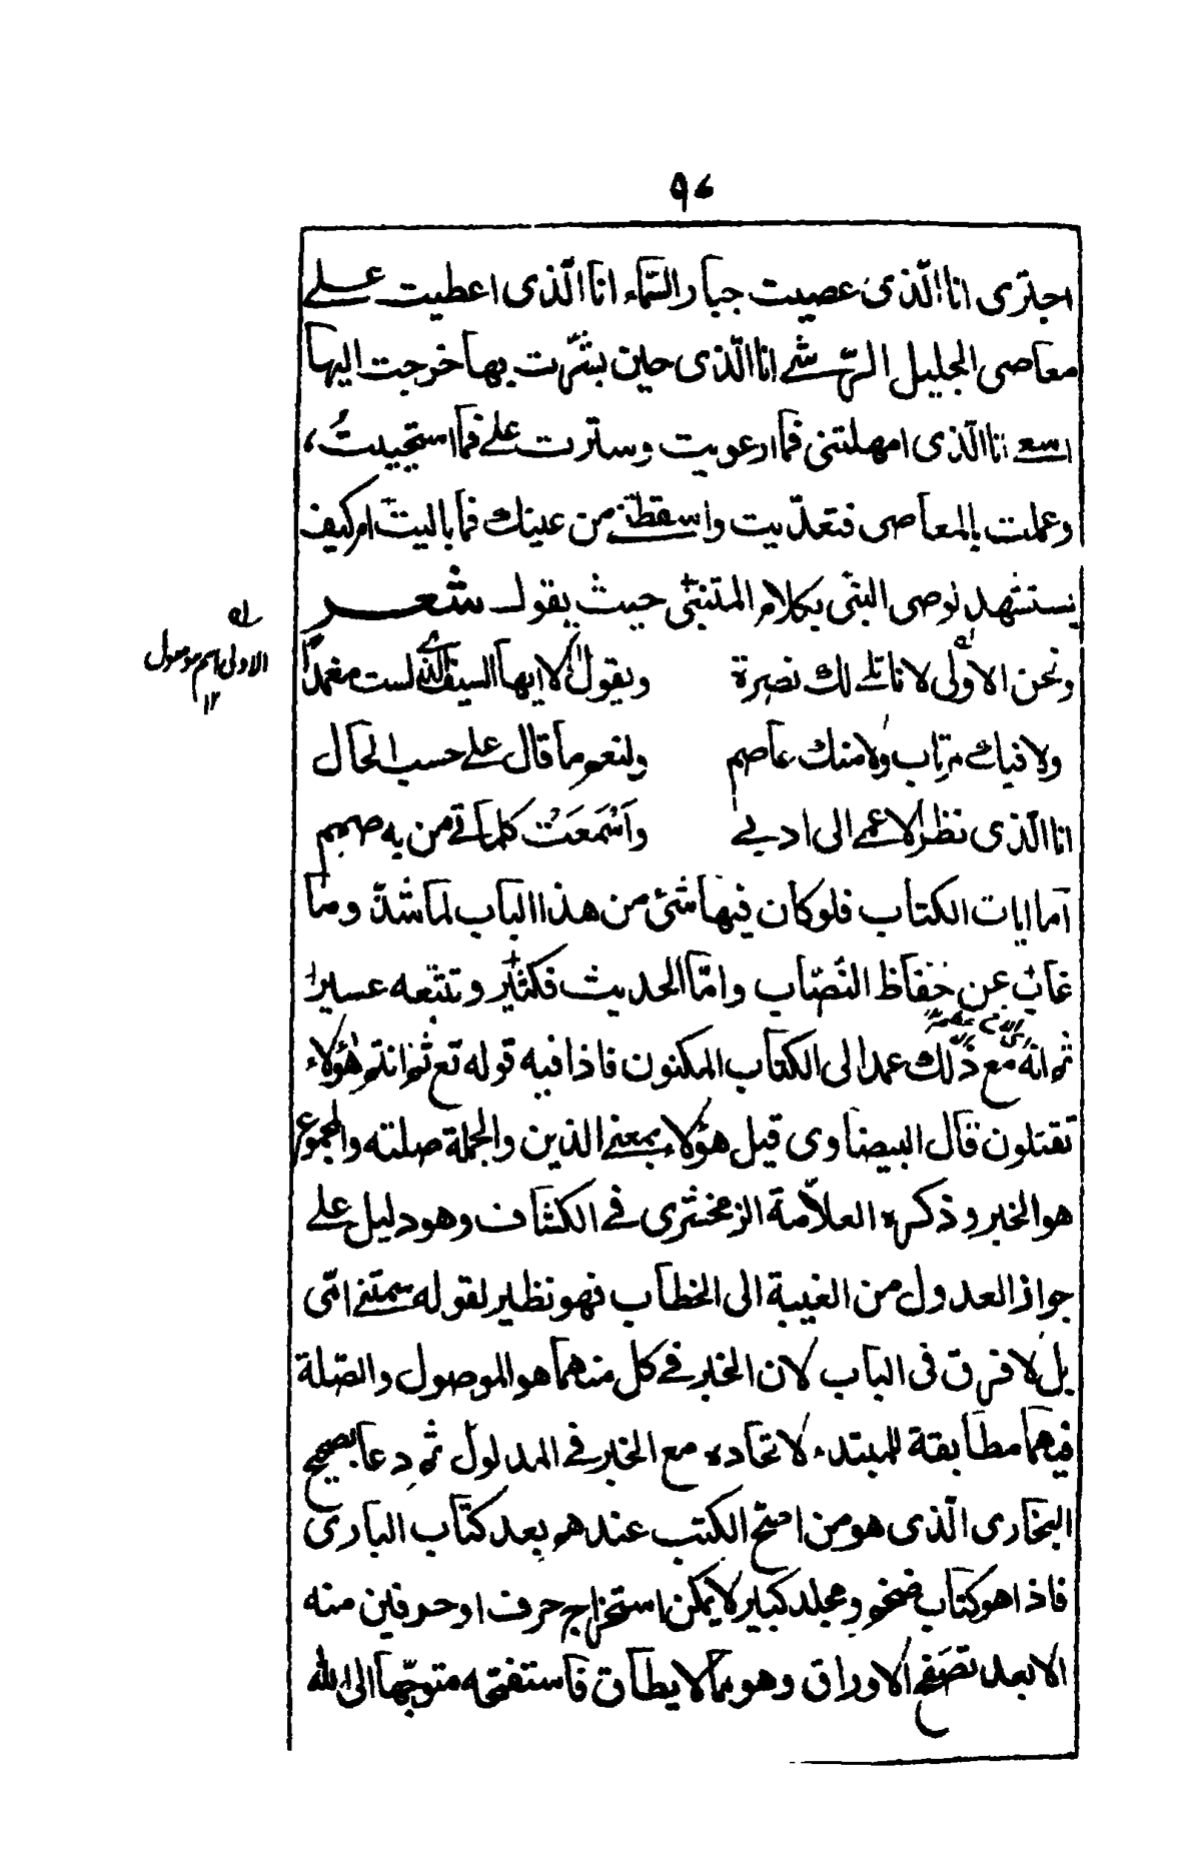 ٩٤
اجترى انا الّذى عصيت جبار السّماء انا الّذى اعطيت على
معاصى الجليل الرّشى انا الّذى حين بشّرت بها خرجت اليها
اسعى انا الّذى امهلتنى فما ارعويت وسترت على فما استحييتُ،
وعملت بالمعاصى فتعدّيت واسقطتنى من عينك فما باليت ام كيف
يستشهد نوصى النبى بكلام المتنبّى حيث يقول شعر
ونحن الاولى لا ناتلى لك نصرة ويقول الا ايها السيف الذى لست مغمدًا
ولا فيك مرتاب ولا منك عاصم ولنعم ما قال على حسب الحال
انا الّذى نظر الاعمى الى ادبى وَاَسْمَعَتْ كلماتى من به صمم
اما ايات الكتاب فلو كان فيها شئ من هذا الباب لما شذّ وما
غاب عن حفاظ النصّاب وامّا الحديث فكثير وتتبعه عسير
ثم انه مع ذٰلك عمد الى الكتاب المكنون فاذا فيه قوله تع ثم انتم هٰؤلاء
تقتلون قال البيضاوى قيل هؤلاء بمعنى الذين والجملة صلته والمجموع
هو الخبر وذكره العلاّمة الزمخشرى فى الكشاف وهو دليل على
جواز العدول من الغيبة الى الخطاب فهو نظير لقوله سمتنى امّى
بل لا فرق فى الباب لان الخبر فى كل منهما هو الموصول والصّلة
فيهما مطابقة للمبتدء لاتحاده مع الخبر فى المدلول ثم دعا بصحيح
البخارى الّذى هو من اصح الكتب عندهم بعد كتاب البارى
فاذا هو كتاب ضخم ومجلد كبير لا يمكن استخراج حرف او حرفين منه
الا بعد تصفح الاوراق وهو مما لا يطاق فاستفتحه متوجّها الى الله
الاولى اسم موصول
١٢